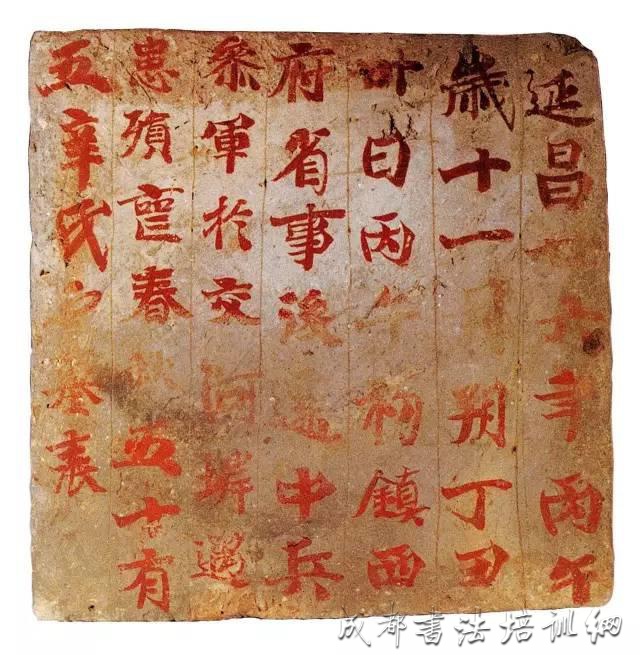 延昌廿六年丙午
歲十一月朔丁丑
卅日丙午初鎮西
府省事後遷中兵
參軍於交河遇
患殞喪春秋五十有
五辛氏之墓表
成都書法培訓網